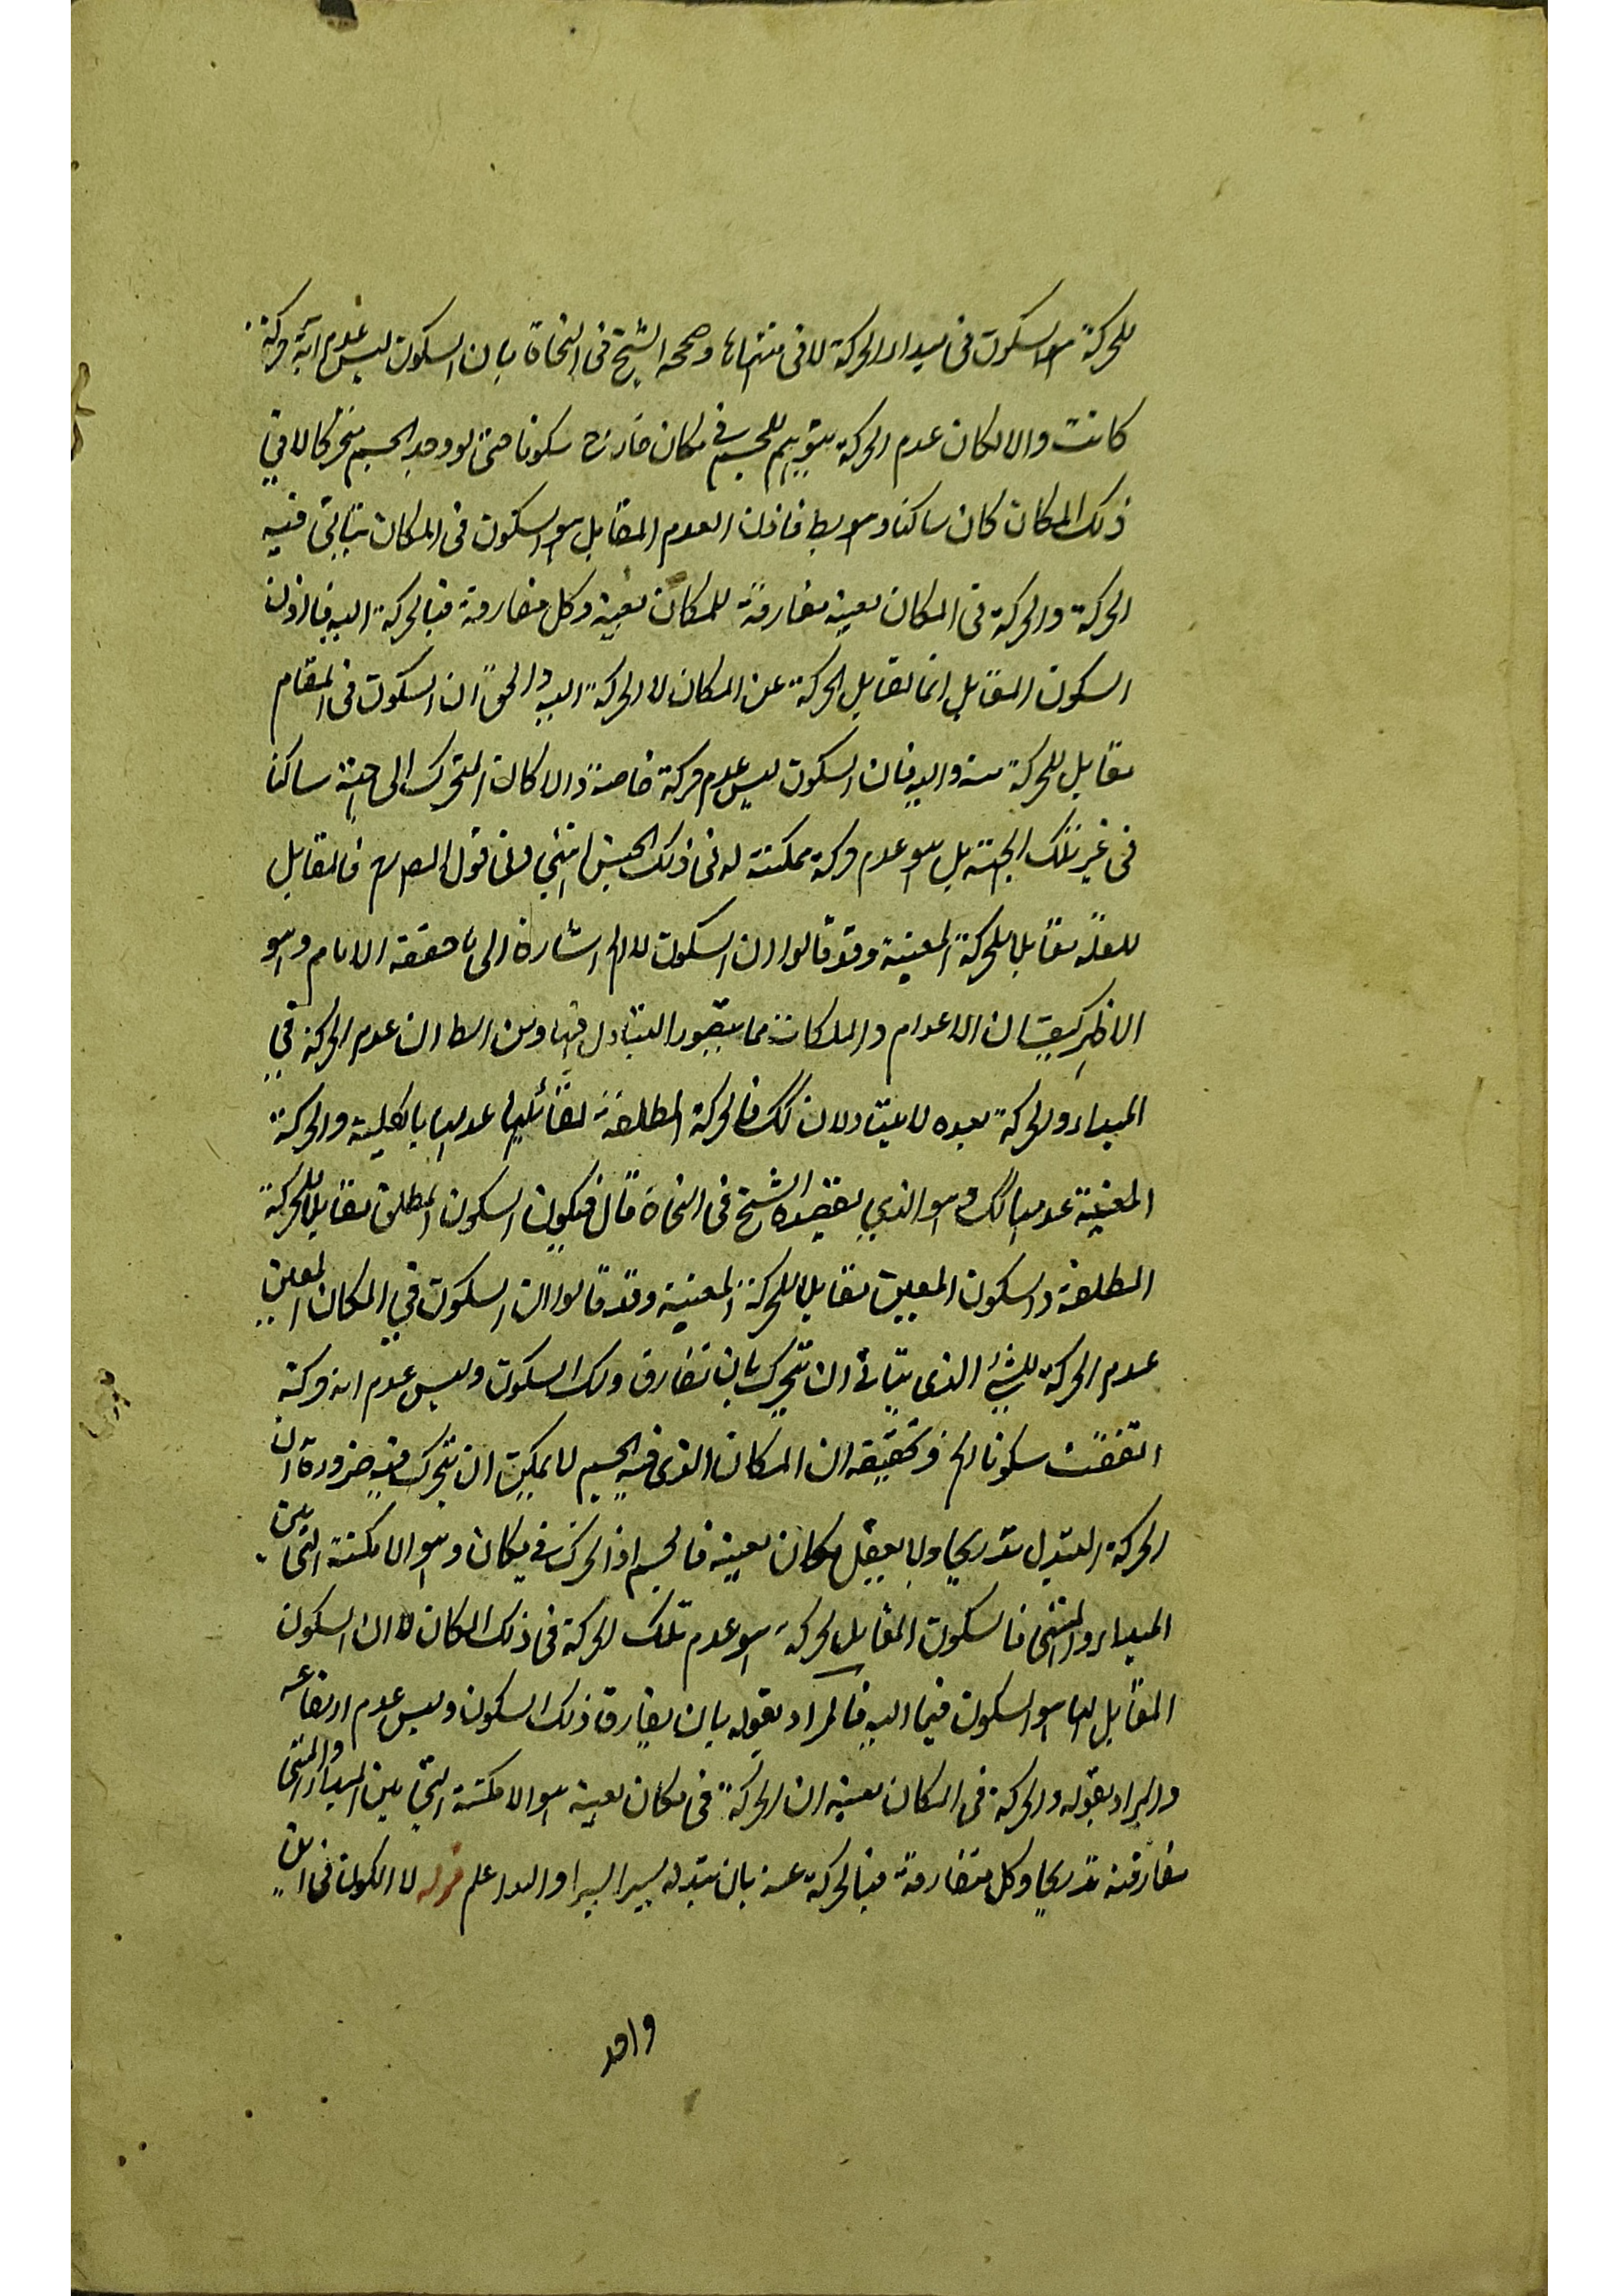 للحركة هو السكون فى مبدا الحركة لا فى منتهاها وصححه الشيخ فى النجاة بان السكون ليس عدم اية حركة
كانت والا لكان عدم الحركة يتوهم للجسم في مكان خارج سكونا حتى لو وجد الجسم متحركا لا في
ذلك المكان كان ساكنا وهو بط فاذن العدم المقابل هو السكون فى المكان يتاتى فيه
الحركة والحركة فى المكان بعينه مفارقة للمكان بعينه وكل مفارقة فبالحركة اليه فاذن
السكون المقابل انما تقابل الحركة عن المكان لا الحركة اليه والحق ان السكون فى المقام
مقابل للحركة منه واليه فان السكون ليس عدم حركة خاصة والا كان المتحرك الى جهة ساكنا
فى غير تلك الجهة بل هو عدم حركة ممكنة له فى ذلك الجنس انتهي وفى قول المص فالمقابل
للعلة مقابلا للحركة المعينة وقد قالوا ان السكون الخ اشارة الى ما حققه الامام وهو
الاظهر كيف ان الاعدام والملكات مما يتصور التبادل فيها ومن البط ان عدم الحركة في
المبداء والحركة بعده لا يتبادلان لك فالحركة المطلقة تقابلها عدمها بالكلية والحركة
المعينة عدمها لك وهو الذي يقصده الشيخ فى النجاة قال فيكون السكون المطلق مقابلا للحركة
المطلقة والسكون المعين مقابلا للحركة المعينة وقد قالوا ان السكون في المكان المعين
عدم الحركة للشئ الذى يتاتى ان يتحرك بان تفارق ذلك السكون وليس عدم اية حركة
اتفقت سكونا الخ وتحقيقه ان المكان الذى فيه الجسم لا يمكن ان يتحرك فيه ضرورة ان
الحركة التبدل تدريجا ولا يعقل مكان بعينه فالجسم اذا تحرك فى مكان وهو الامكنة التى بين
المبداء والمنتهى فالسكون المقابل لحركته هو عدم تلك الحركة فى ذلك المكان لا ان السكون
المقابل لها هو السكون فيما اليه فالمراد بقوله بان يفارق ذلك السكون وليس عدم ارتفاعه
والمراد بقوله والحركة فى المكان بعينه ان الحركة فى مكان بعينه هو الامكنة التي بين المبداء والمنتهى
مفارقته تدريجا وكل مفارقة فبالحركة عنه بان يتبدله يسيرا يسيرا والله اعلم قوله لا الكون فى
واحد